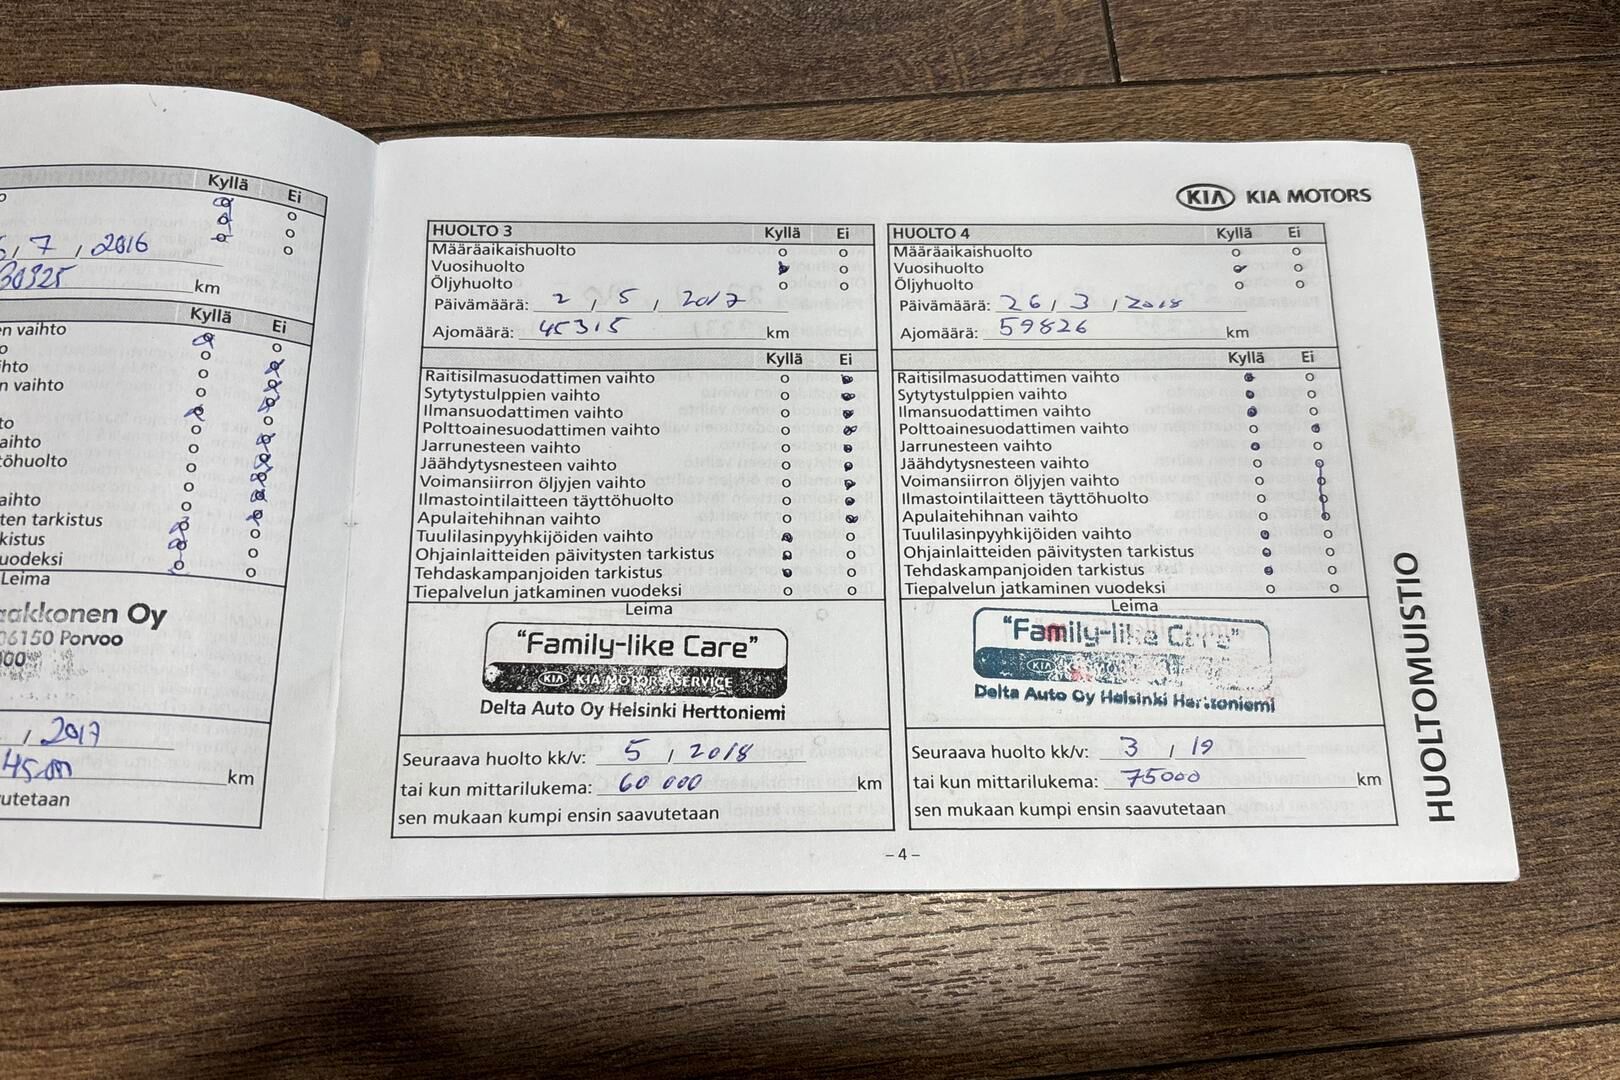 Kyllä Ei
7 / 2016
30925 km
Kyllä Ei
en vaihto
ihto
n vaihto
to
aihto
töhuolto
aihto
ten tarkistus
kistus
uodeksi
Leima
akkonen Oy
06150 Porvoo
/ 2017
km
utetaan
KIA KIA MOTORS
HUOLTO 3 Kyllä Ei
Määräaikaishuolto
Vuosihuolto
Öljyhuolto
Päivämäärä: 2 / 5 / 2017
Ajomäärä: 45315 km
Kyllä Ei
Raitisilmasuodattimen vaihto
Sytytystulppien vaihto
Ilmansuodattimen vaihto
Polttoainesuodattimen vaihto
Jarrunesteen vaihto
Jäähdytysnesteen vaihto
Voimansiirron öljyjen vaihto
Ilmastointilaitteen täyttöhuolto
Apulaitehihnan vaihto
Tuulilasinpyyhkijöiden vaihto
Ohjainlaitteiden päivitysten tarkistus
Tehdaskampanjoiden tarkistus
Tiepalvelun jatkaminen vuodeksi
Leima
"Family-like Care"
KIA KIA MOTORS SERVICE
Delta Auto Oy Helsinki Herttoniemi
Seuraava huolto kk/v: 5 / 2018
tai kun mittarilukema: 60 000 km
sen mukaan kumpi ensin saavutetaan
HUOLTO 4 Kyllä Ei
Määräaikaishuolto
Vuosihuolto
Öljyhuolto
Päivämäärä: 26 / 3 / 2018
Ajomäärä: 59826 km
Kyllä Ei
Raitisilmasuodattimen vaihto
Sytytystulppien vaihto
Ilmansuodattimen vaihto
Polttoainesuodattimen vaihto
Jarrunesteen vaihto
Jäähdytysnesteen vaihto
Voimansiirron öljyjen vaihto
Ilmastointilaitteen täyttöhuolto
Apulaitehihnan vaihto
Tuulilasinpyyhkijöiden vaihto
Ohjainlaitteiden päivitysten tarkistus
Tehdaskampanjoiden tarkistus
Tiepalvelun jatkaminen vuodeksi
Leima
"Family-like Care"
KIA
Delta Auto Oy Helsinki Herttoniemi
Seuraava huolto kk/v: 3 / 19
tai kun mittarilukema: 75000 km
sen mukaan kumpi ensin saavutetaan
HUOLTOMUISTIO
– 4 –